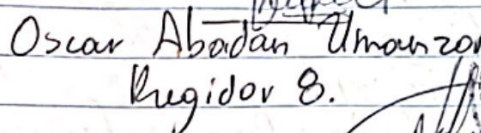 Oscar Abadan Umanzor
Regidor 8.